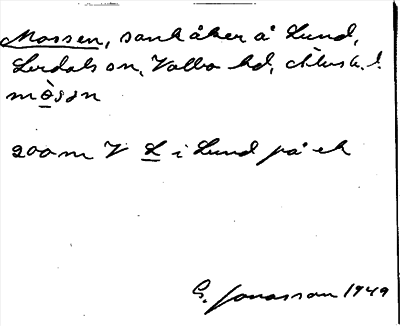 Mossen, sank åker å Lund,
Lerdals sn, Valbo hd, Älvsb. l.
mòsən
200 m V L i Lund på ek
G. Jonasson 1949